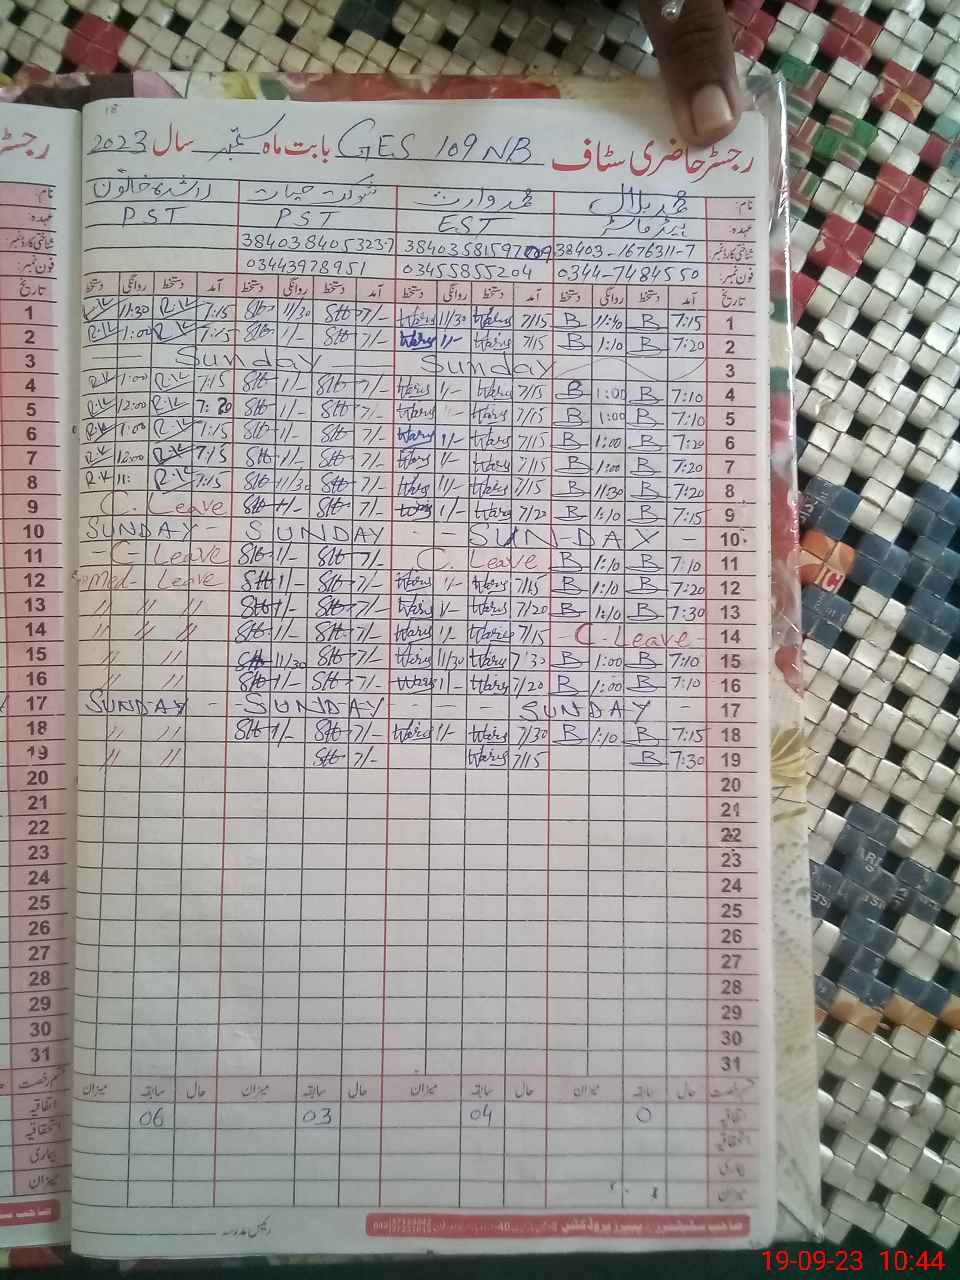 رجسٹر حاضری سٹاف GES 109 NB بابت ماہ ستمبر سال 2023
نام: محمد بلال محمد وارث شوکت حیات راشدہ خاتون
عہدہ: ہیڈ ماسٹر EST PST PST
شناختی کارڈ نمبر: 38403-1676311-7 384038405323-7
فون نمبر: 0344-7484550 03455855204 03443978951
تاریخ آمد دستخط روانگی دستخط آمد دستخط روانگی دستخط آمد دستخط روانگی دستخط آمد دستخط روانگی دستخط تاریخ
1 11:30 R.K 7:15 Sth 11/30 Sth 7/- Waris 11/30 Waris 7/15 B 11:40 B 7:15 1
2 R.K 1:00 R.K 7:15 Sth 1/- Sth 7/- Waris 1/- Waris 7/15 B 1:10 B 7:20 2
3 Sunday Sunday 3
4 R.K 1:00 R.K 7:15 Sth 1/- Sth 7/- Waris 1/- Waris 7/15 B 1:00 B 7:10 4
5 R.K 12:00 R.K 7:20 Sth 1/- Sth 7/- Waris Waris 7/15 B 1:00 B 7:10 5
6 R.K 1:00 R.K 7:15 Sth 1/- Sth 7/- Waris 1/- Waris 7/15 B 1:00 B 7:20 6
7 R.K 12:00 R.K 7:15 Sth 1/- Sth 7/- Waris 1/- Waris 7/15 B 1:00 B 7:20 7
8 R.K 11: R.K 7:15 Sth 11/30 Sth 7/- Waris Waris 7/15 B 11:30 B 7:20 8
9 C. Leave Sth 1/- Sth 7/- Waris 1/- Waris 7/20 B 1:10 B 7:15 9
10 SUNDAY - SUNDAY - - SUN-DAY - 10
11 - C- Leave Sth 1/- Sth 7/- C. Leave B 1:10 B 7:10 11
12 med- Leave Sth 1/- Sth 7/- Waris 1/- Waris 7/15 B 1:10 B 7:20 12
13 // // // Sth 1/- Sth 7/- Waris 1/- Waris 7/20 B 1:10 B 7:30 13
14 // // // Sth 1/- Sth 7/- Waris 1/- Waris 7/15 - C - Leave - 14
15 // // Sth 11/30 Sth 7/- Waris 11/30 Waris 7/30 B 1:00 B 7:10 15
16 // // Sth 1/- Sth 7/- Waris 1/- Waris 7/20 B 1:00 B 7:10 16
17 SUNDAY - - SUNDAY - - - - SUNDAY - 17
18 // // Sth 1/- Sth 7/- Waris 1/- Waris 7/30 B 1:10 B 7:15 18
19 // // Sth 7/- Waris 7/15 B 7:30 19
20 20
21 21
22 22
23 23
24 24
25 25
26 26
27 27
28 28
29 29
30 30
31 31
قسم رخصت حال سابقہ میزان حال سابقہ میزان حال سابقہ میزان حال سابقہ میزان قسم رخصت
اتفاقیہ 0 04 03 06 اتفاقیہ
استحقاقیہ استحقاقیہ
بیماری بیماری
میزان میزان
رئیس مدرسہ
19-09-23 10:44